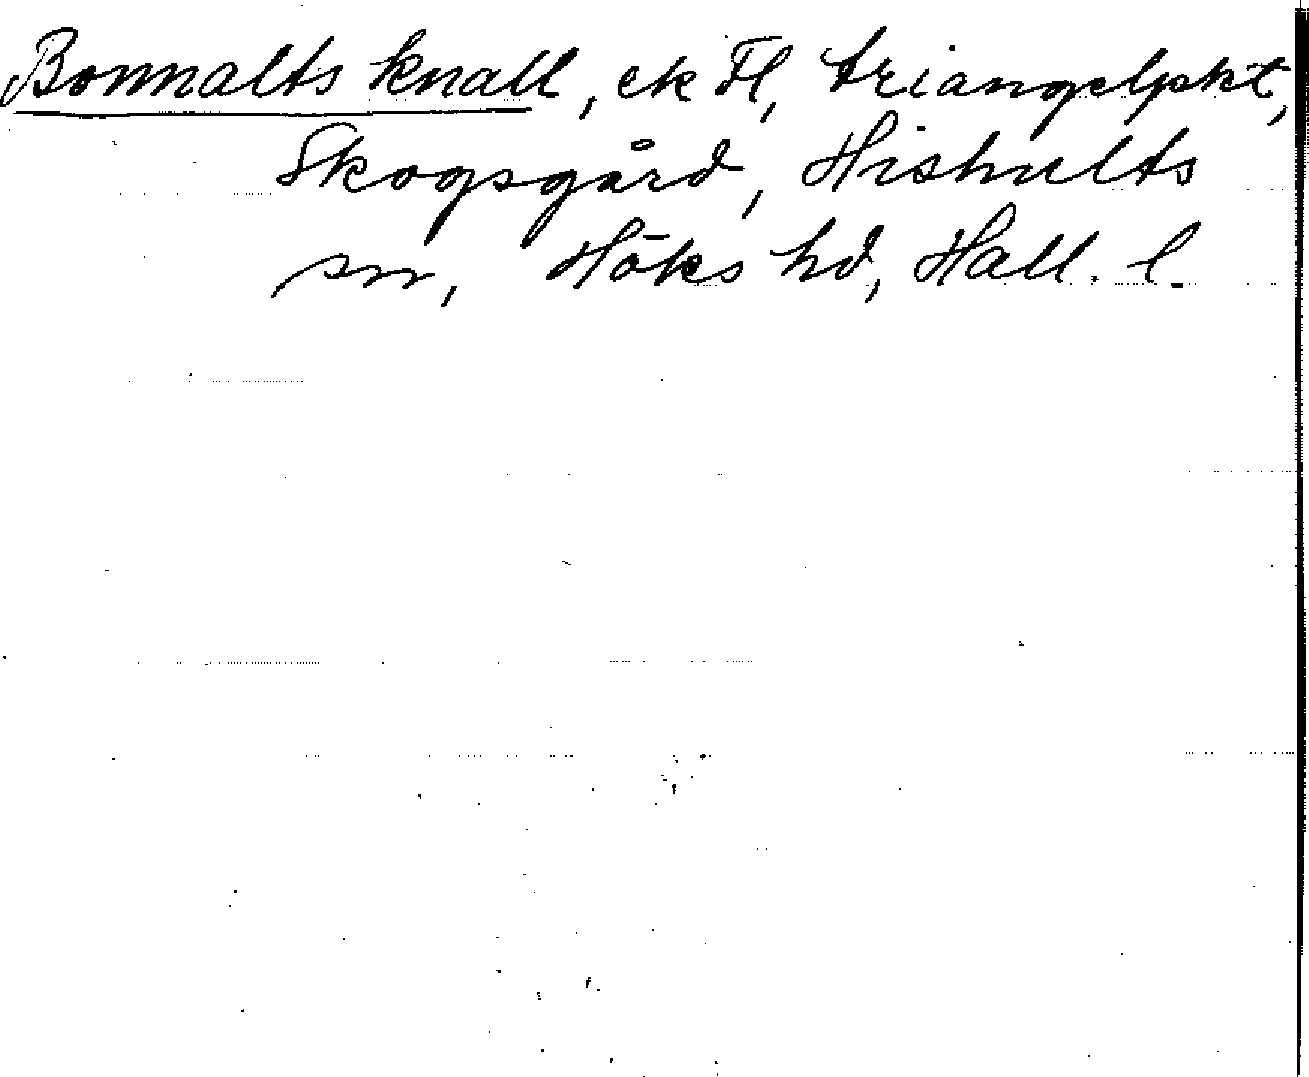 Bonnalts knall, ek Fl, triangelpkt,
Skogsgård, Hishults
sn, Höks hd, Hall. l.